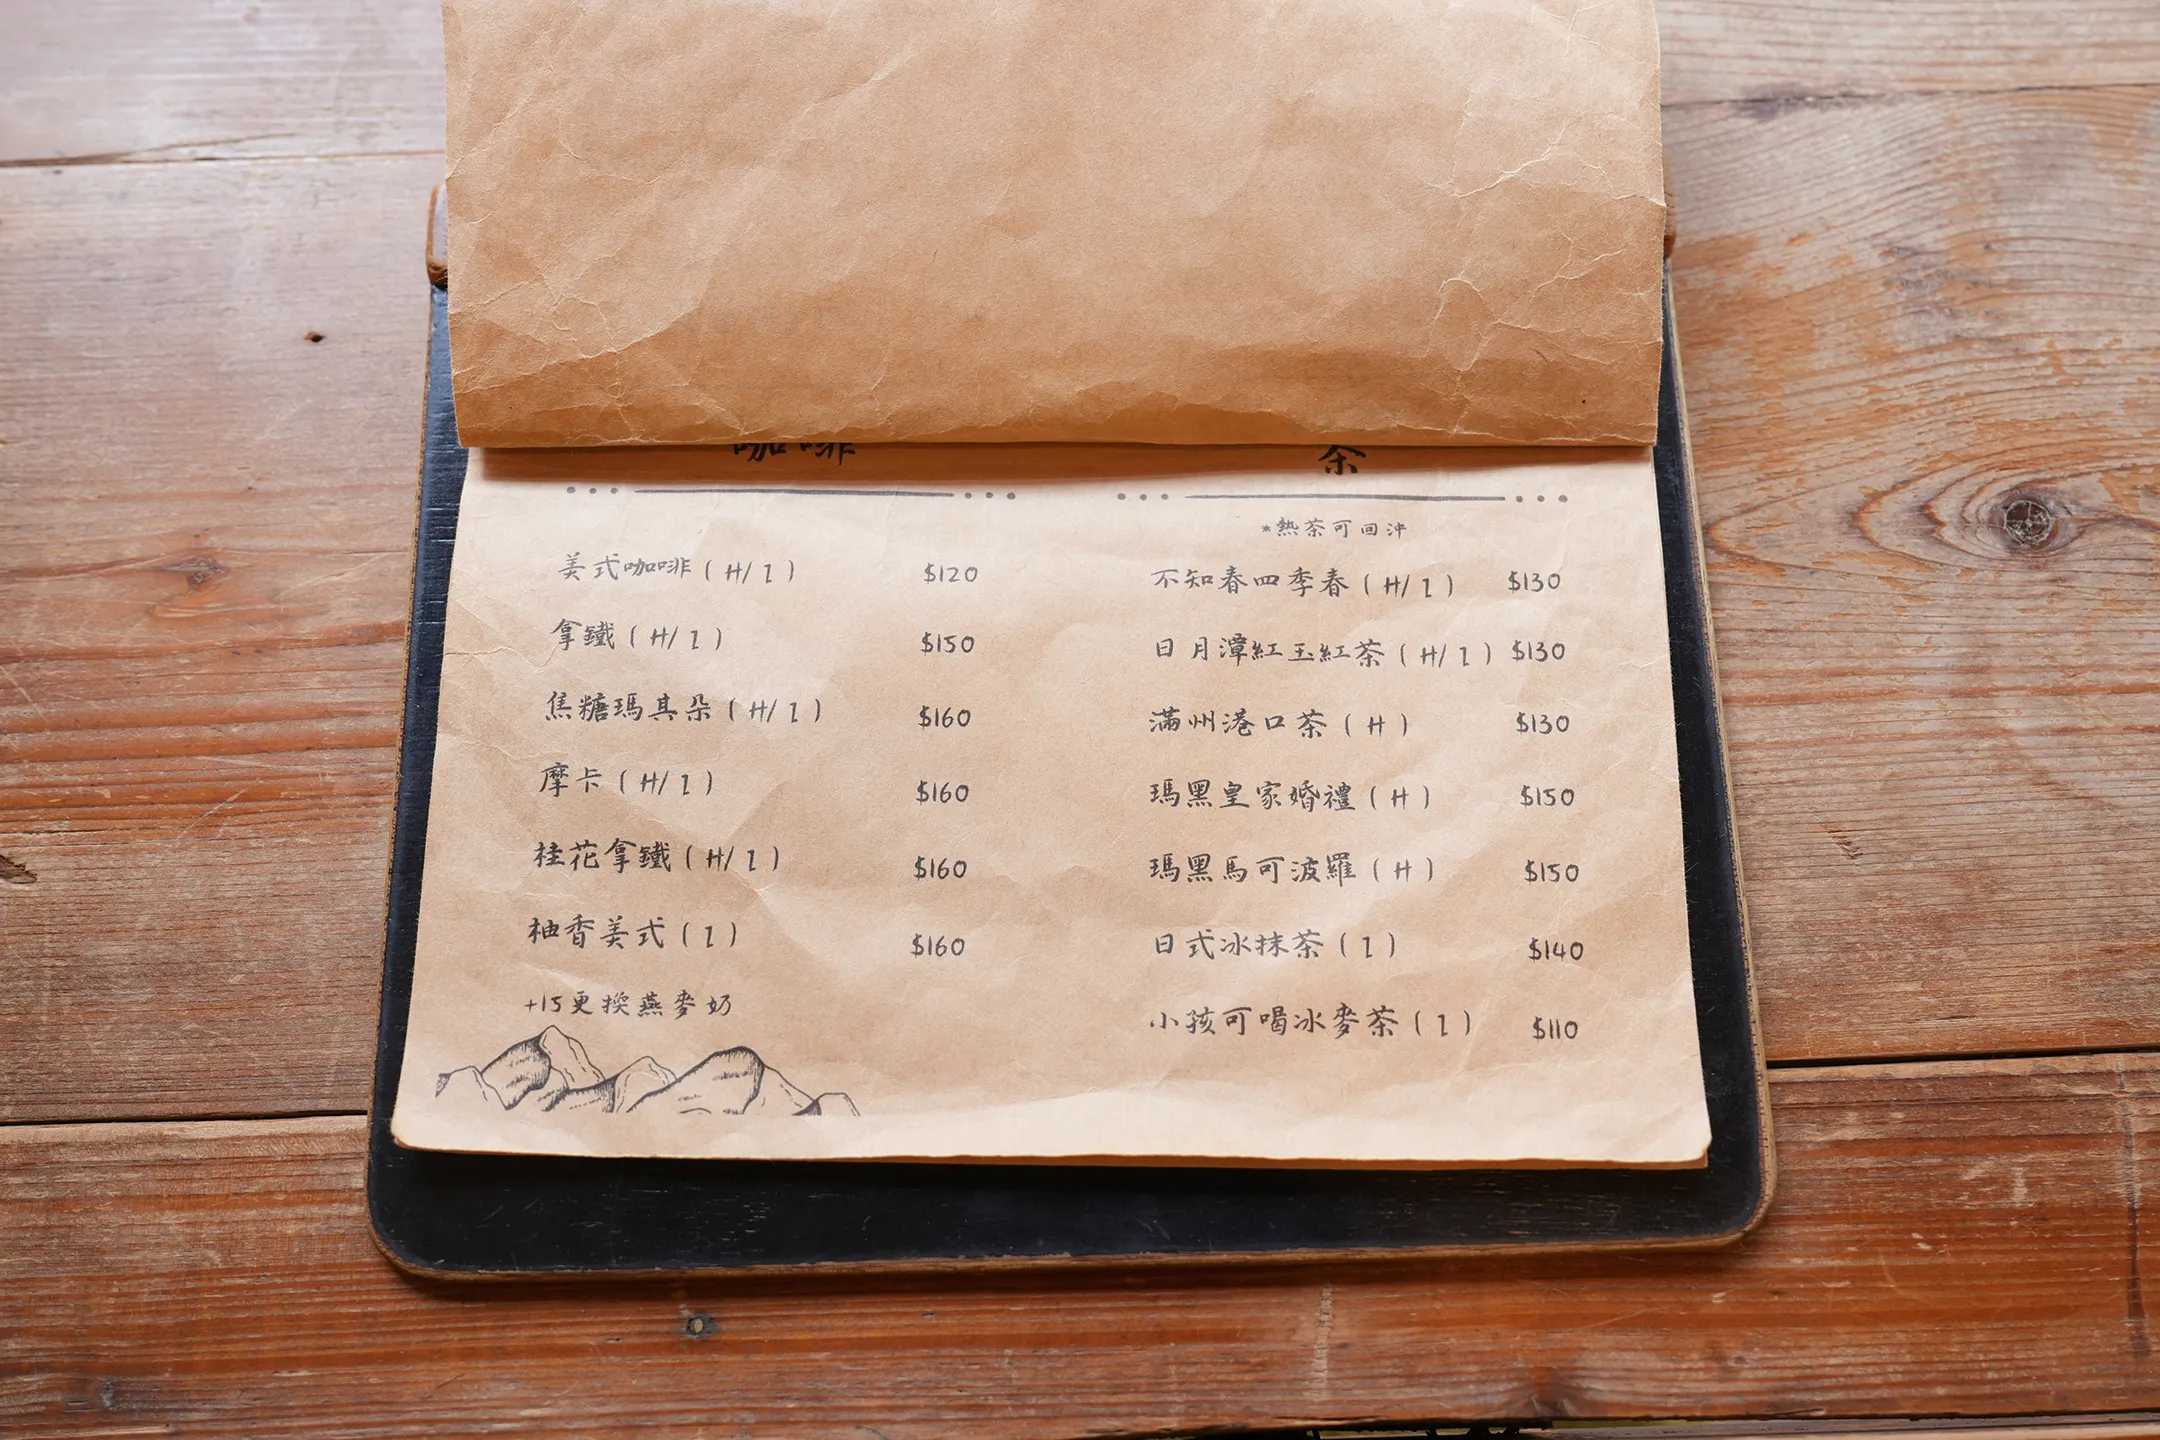 咖啡
美式咖啡（H/I） $120
拿鐵（H/I） $150
焦糖瑪其朵（H/I） $160
摩卡（H/I） $160
桂花拿鐵（H/I） $160
柚香美式（I） $160
+15更換燕麥奶
茶
*熱茶可回沖
不知春四季春（H/I） $130
日月潭紅玉紅茶（H/I） $130
滿州港口茶（H） $130
瑪黑皇家婚禮（H） $150
瑪黑馬可波羅（H） $150
日式冰抹茶（I） $140
小孩可喝冰麥茶（I） $110